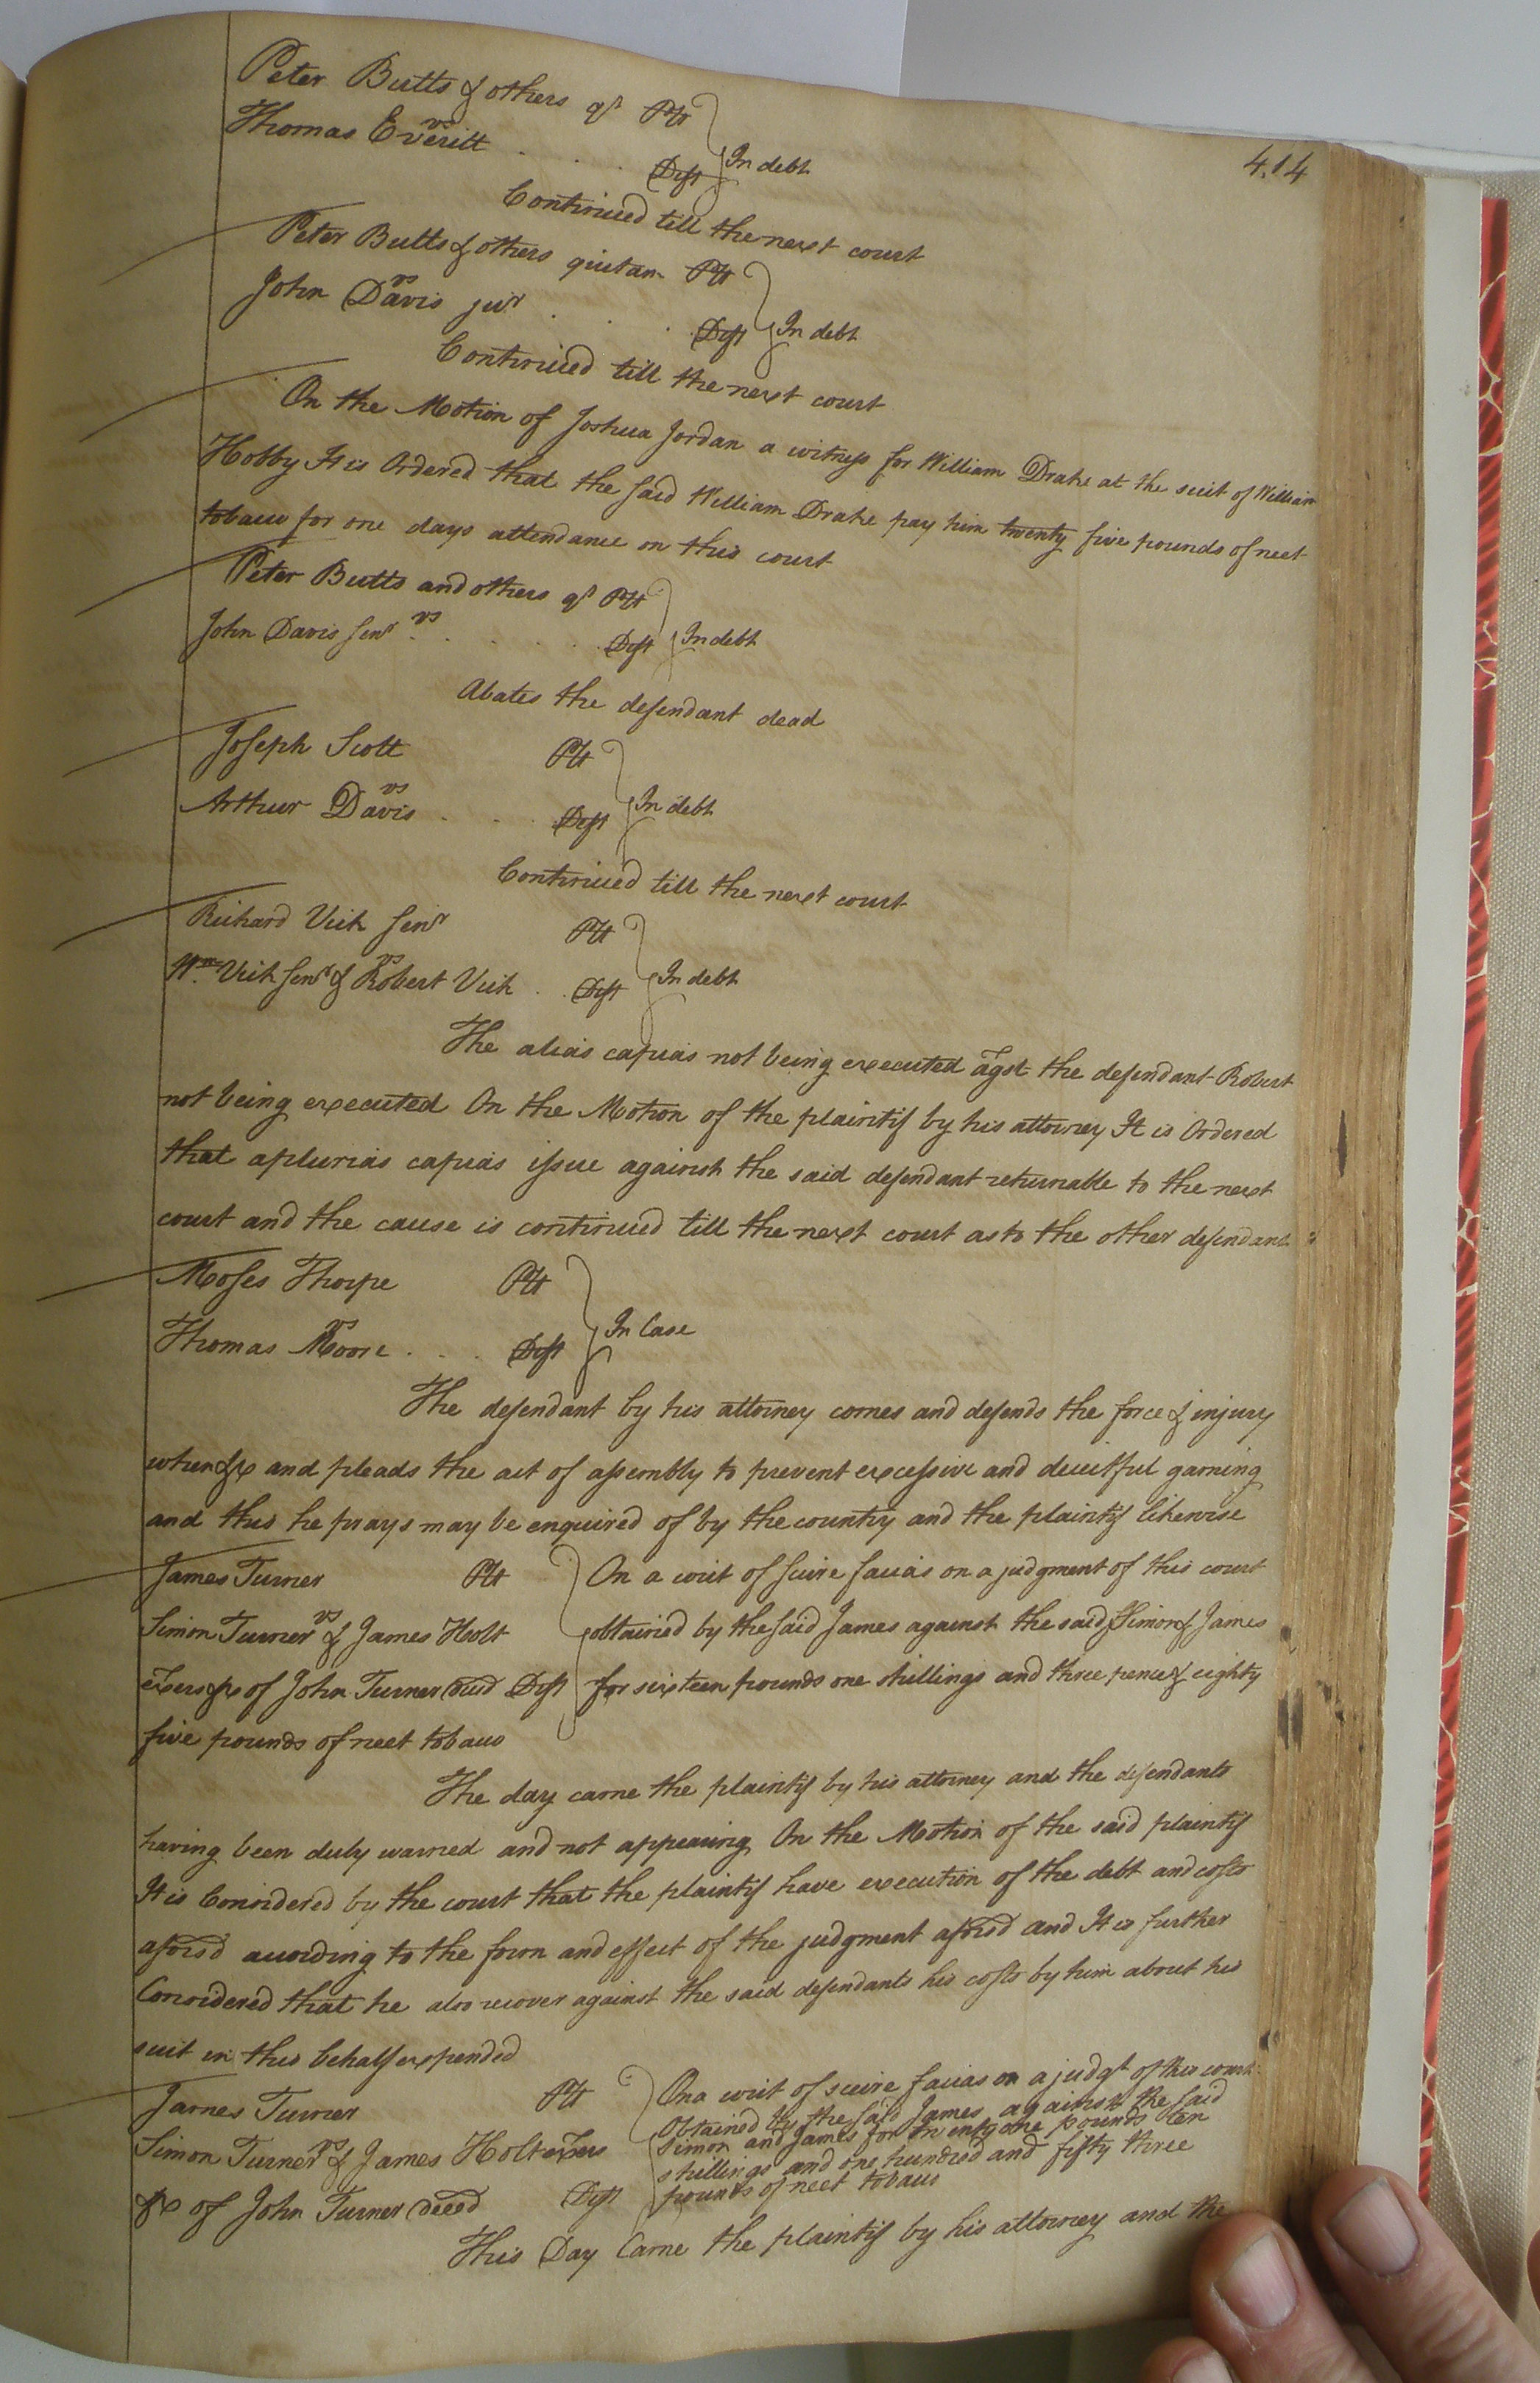 414
Peter Butts & others qt Plt
vs
Thomas Everitt . . . Deft In debt
Continued till the next court
Peter Butts & others quitam Plt
vs
John Davis junr . . . Deft In debt
Continued till the next court
On the Motion of Joshua Jordan a witness for William Drake at the suit of William
Hobby It is Ordered that the said William Drake pay him twenty five pounds of neet
tobacco for one days attendance on this court
Peter Butts and others qt Plt
vs
John Davis senr . . . . Deft In debt
Abates the defendant dead
Joseph Scott Plt
vs
Arthur Davis . . . Deft In debt
Continued till the next court
Richard Vick senr Plt
vs
Wm Vick senr & Robert Vick . . Deft In debt
The alias capias not being executed agst the defendant Robert
not being executed On the Motion of the plaintif by his attorney It is Ordered
that a plurias capias issue against the said defendant returnable to the next
court and the cause is continued till the next court as to the other defendant
Moses Thorpe Plt
vs
Thomas Moore . . . Deft In Case
The defendant by his attorney comes and defends the force & injury
when &c and pleads the act of assembly to prevent excessive and deceitful gaming
and this he prays may be enquired of by the country and the plaintif likewise
James Turner Plt On a writ of scire facias on a judgment of this court
vs
Simon Turner & James Holt obtained by the said James against the said Simon & James
exers &c of John Turner decd Deft for sixteen pounds one shillings and three pence & eighty
five pounds of neet tobacco
The day came the plaintif by his attorney and the defendants
having been duly warned and not appearing On the Motion of the said plaintif
It is Considered by the court that the plaintif have execution of the debt and costs
aforesd according to the form and effect of the judgment aforesd and It is further
Considered that he also recover against the said defendants his costs by him about his
suit in this behalf expended
James Turner Plt On a writ of scire facias on a judgt of this court
vs
obtained by the said James against the said
Simon Turner & James Holt exers Simon and James for twenty one pounds ten
shillings and one hundred and fifty three
&c of John Turner deced Deft pounds of neet tobacco
This Day Came the plaintif by his attorney and the